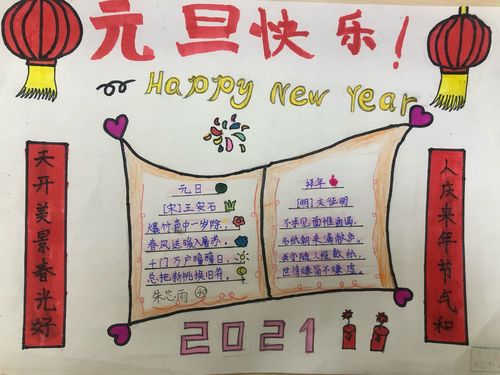 元旦快乐！
Happy New Year
天开美景春光好
人庆来年节气和
元日
[宋]王安石
爆竹声中一岁除，
春风送暖入屠苏，
千门万户曈曈日，
总把新桃换旧符。
朱芯雨
拜年
[明]文征明
不求见面惟通谒，
名纸朝来满敝庐。
我亦随人投数纸，
世情嫌简不嫌虚。
2021